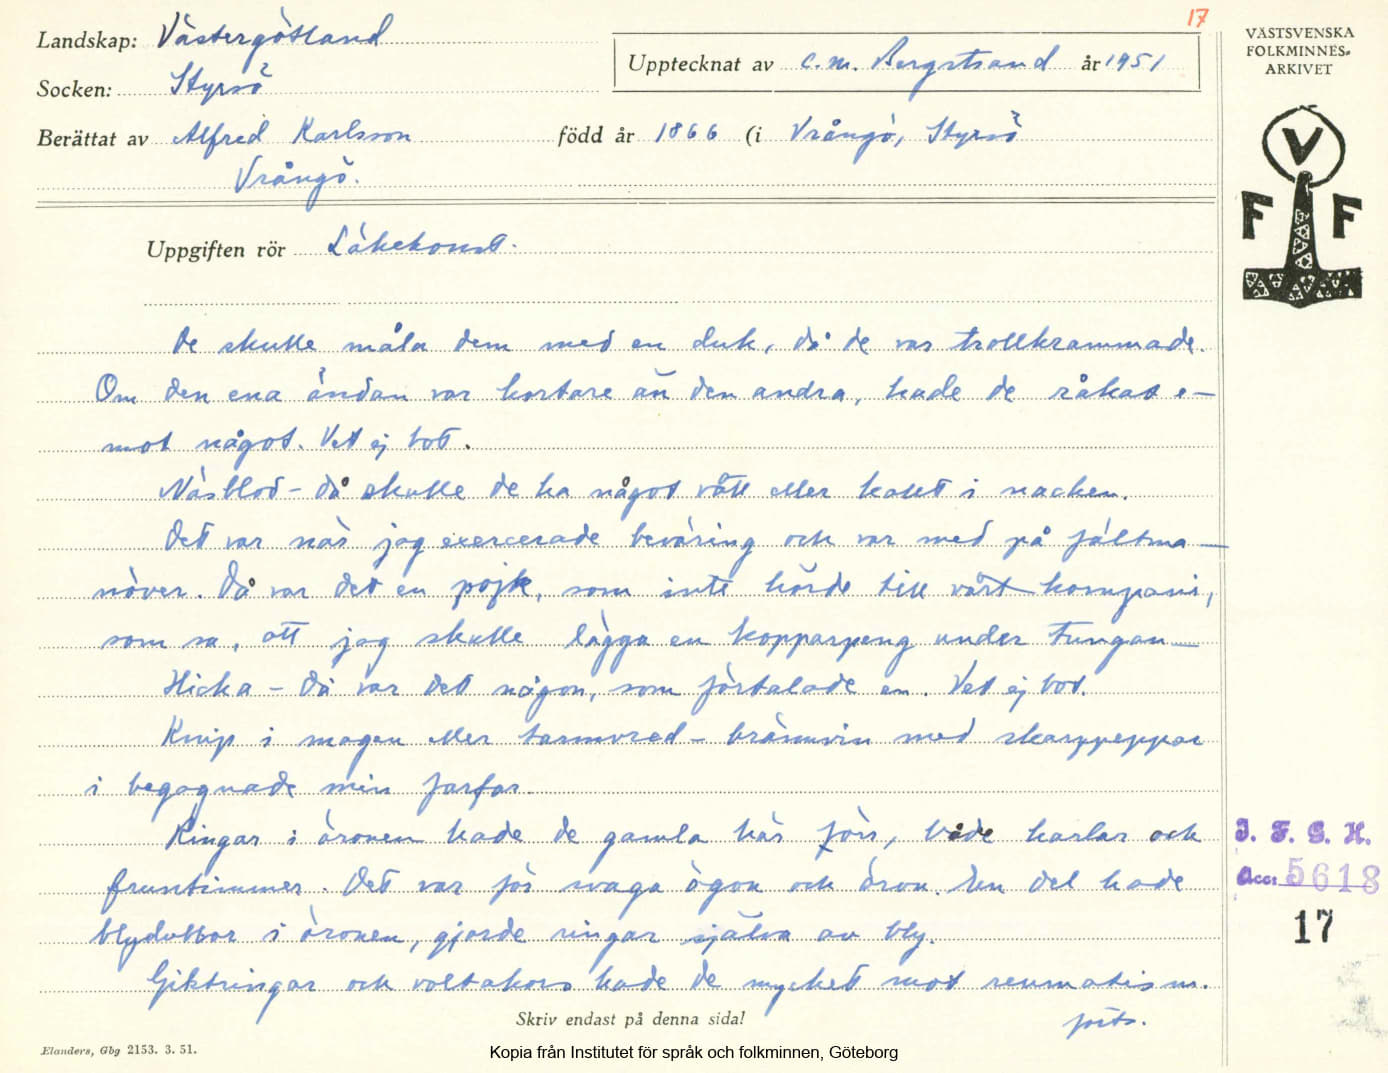 17
Landskap: Västergötland
Upptecknat av C. M. Bergstrand år 1951
Socken: Styrsö
Berättat av Alfred Karlsson född år 1866 (i Vrångö, Styrsö
Vrångö.
VÄSTSVENSKA
FOLKMINNES-
ARKIVET
V
F F
Uppgiften rör Läkekonst.
De skulle måla dem med en duk, då de var trollkrammade.
Om den ena ändan var kortare än den andra, hade de råkat e-
mot något. Vet ej bot.
Näsblod – då skulle de ha något vått eller kallt i nacken.
Det var när jag exercerade beväring och var med på fältma-
növer. Då var det en pojk, som inte hörde till vårt kompani,
som sa, att jag skulle lägga en kopparpeng under tungan –
Hicka – då var det någon, som förtalade en. Vet ej bot.
Knip i magen eller tarmvred – brännvin med skarppeppar
i begagnade min farfar.
Ringar i öronen hade de gamla här förr, både karlar och
fruntimmer. Det var för svaga ögon och öron. En del hade
blydubbar i öronen, gjorde ringar själva av bly.
Giktringar och voltakors hade de mycket mot reumatism.
forts.
Skriv endast på denna sida!
Elanders, Gbg 2153. 3. 51.
I. F. G. H.
Acc: 5618
17
Kopia från Institutet för språk och folkminnen, Göteborg